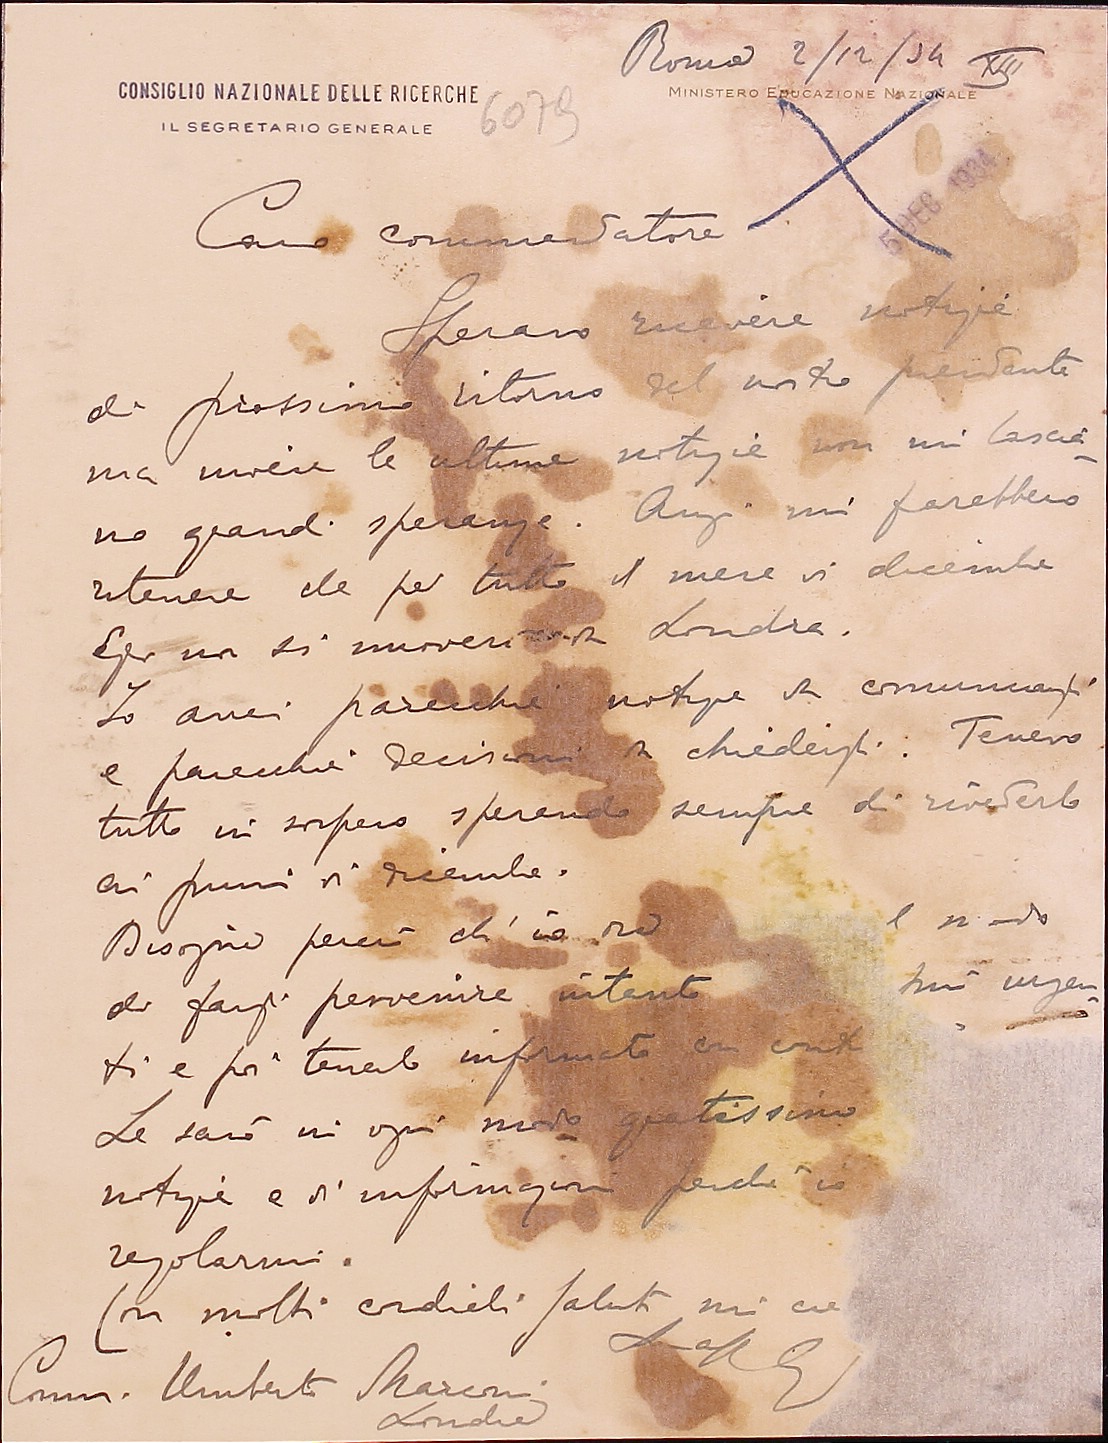 Roma 2/12/34 XIII
CONSIGLIO NAZIONALE DELLE RICERCHE
MINISTERO EDUCAZIONE NAZIONALE
IL SEGRETARIO GENERALE
6079
5 DEC 1934
Caro commendatore
Speravo ricevere notizie
di prossimo ritorno del nostro presidente
ma invece le ultime notizie non mi lascia-
no grandi speranze. Anzi mi farebbero
ritenere che per tutto il mese di dicembre
Egli non si muoverà da Londra.
Io avrei parecchie notizie da comunicargli
e parecchie decisioni da chiedergli. Tenevo
tutto in sospeso sperando sempre di rivederlo
ai primi di dicembre.
Bisogna perciò ch'io l modo
di fargli pervenire intanto urgen-
ti e poi tenerlo informato
Le sarò in ogni modo gratissimo
notizie e di informazioni perché io
regolarmi.
Con molti cordiali saluti mi
Comm. Umberto Marconi
Londra